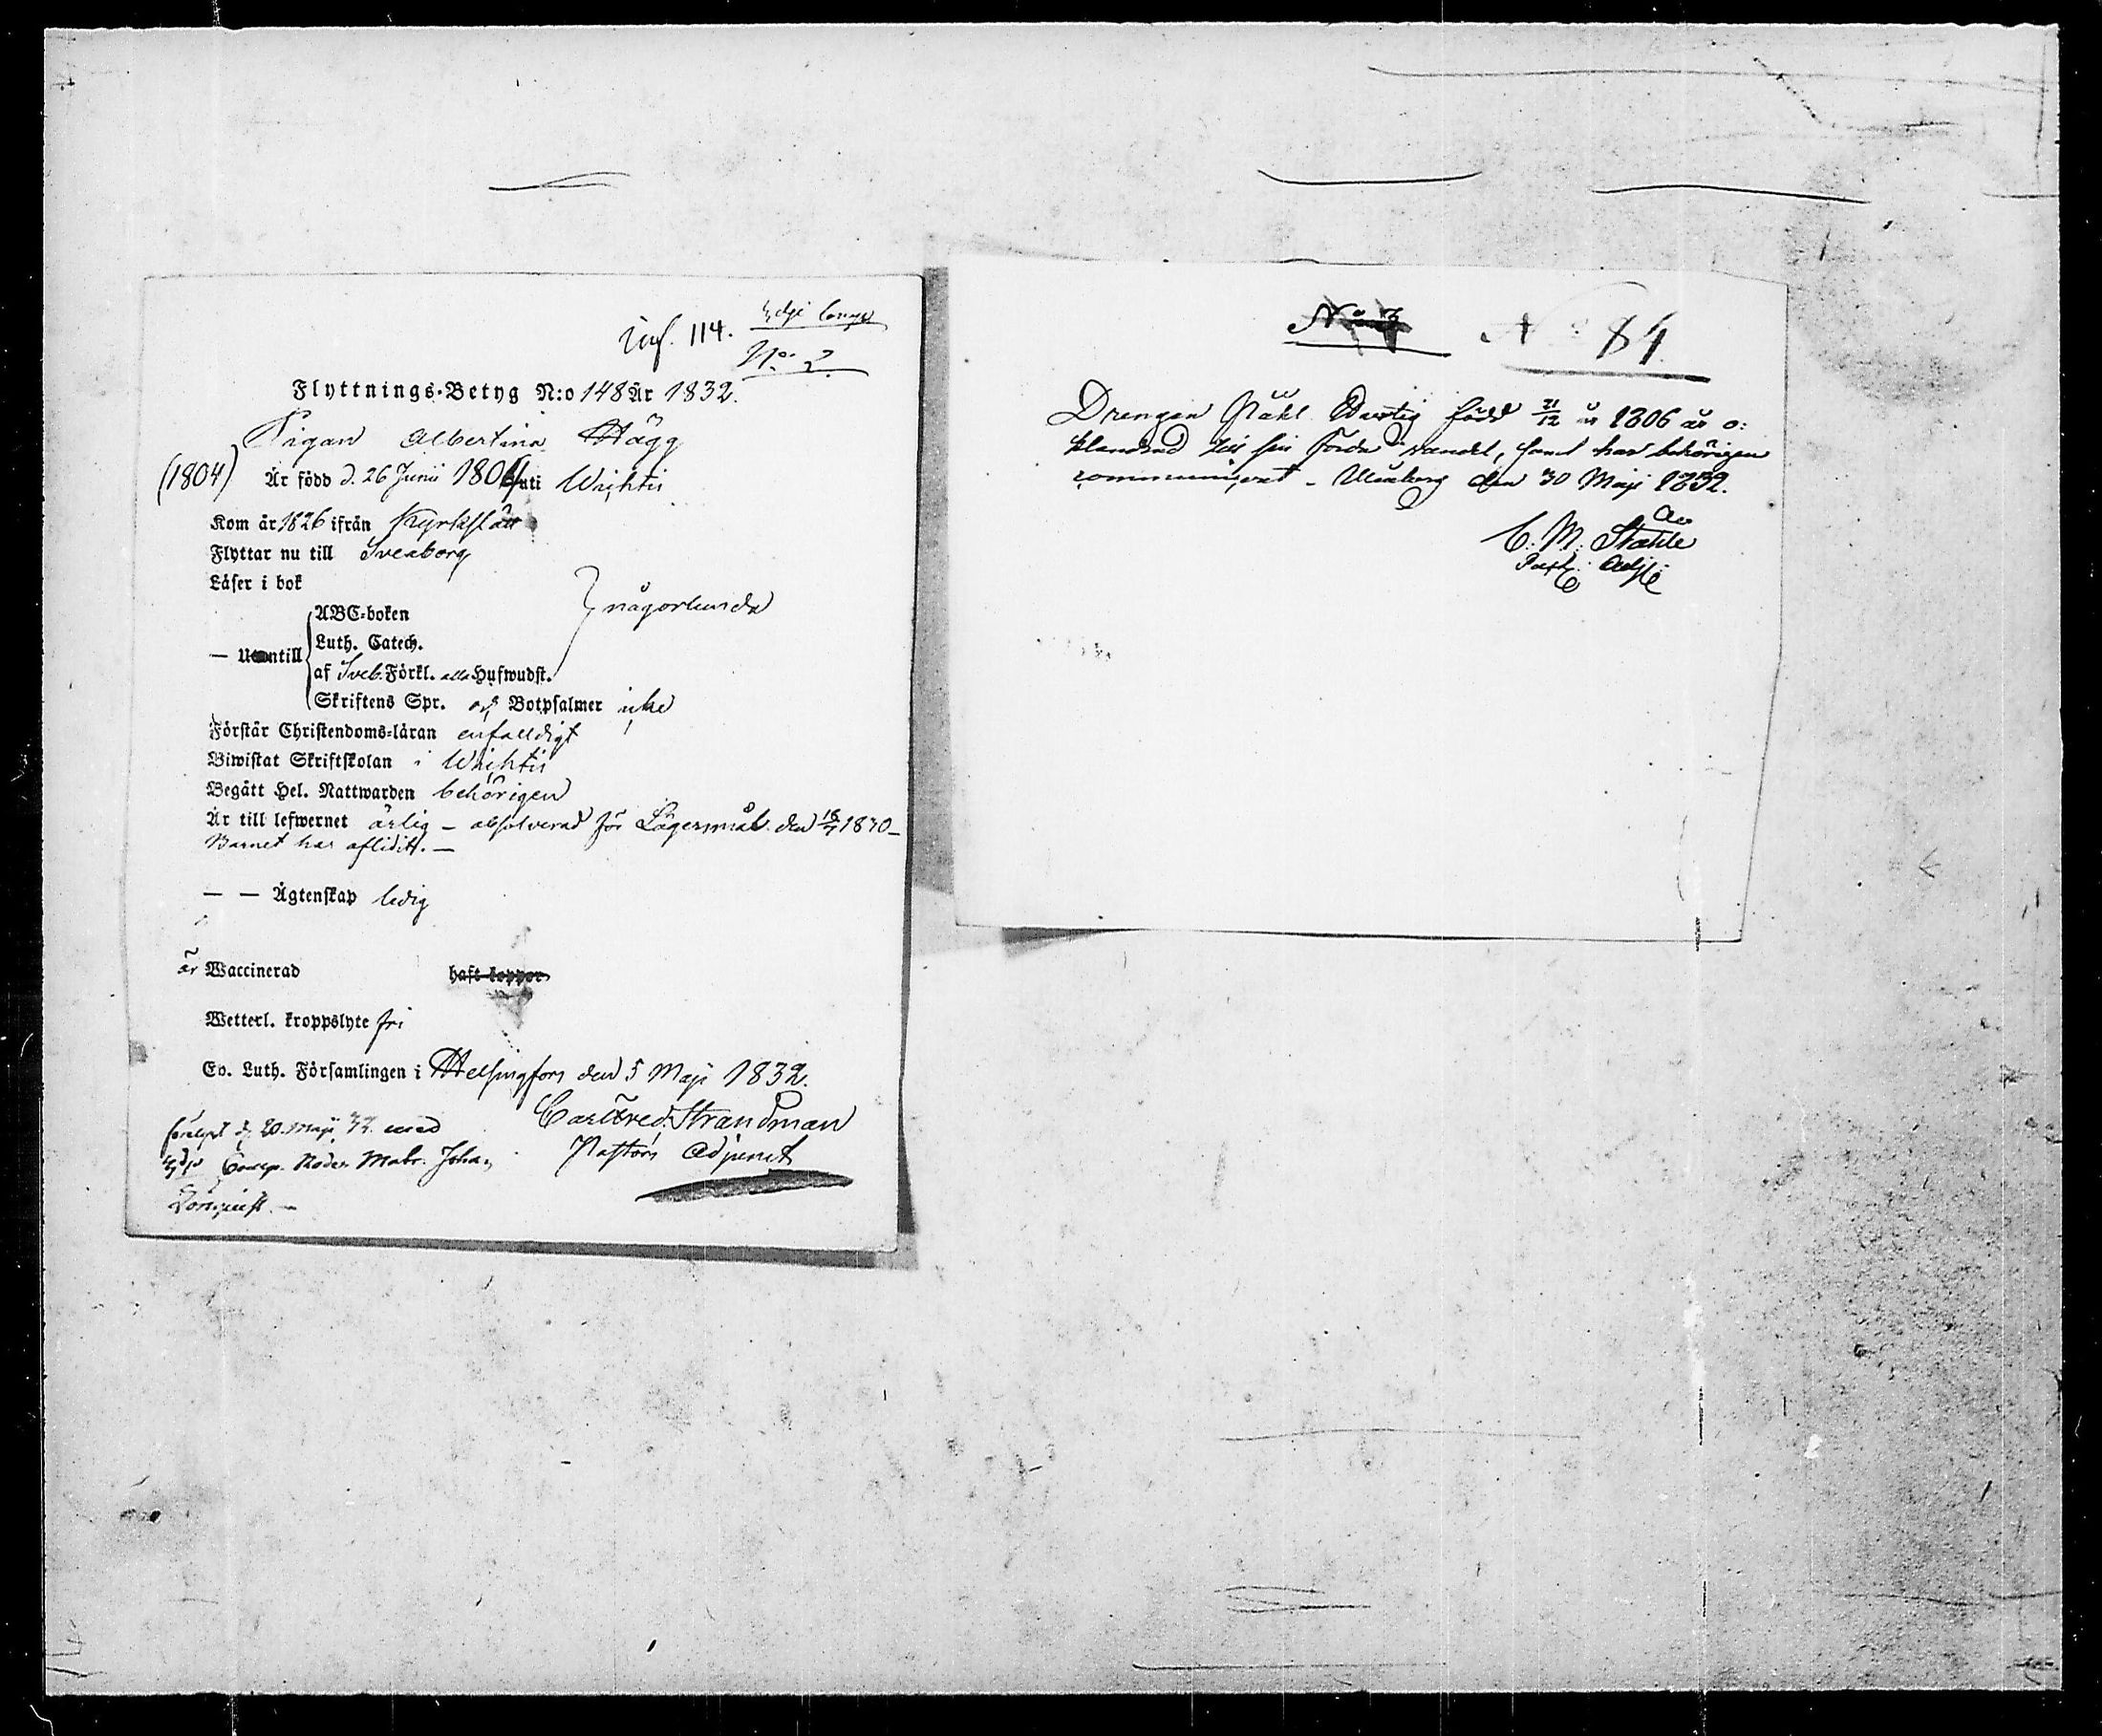 Inf. 114.
No 2.
Flyttnings-Betyg N:o 148 År 1832.
Pigan Albertina Hägg
(1804) Är född d. 26 Junii 1804 uti Wichtis
Kom år 1826 ifrån Kyrkslätt
Flyttar nu till Sveaborg
Läser i bok
ABC-boken
} någorlunda
Luth. Catech.
— Utantill
af Sveb. Förkl. alla Hufwudst.
Skriftens Spr. och Botpsalmer icke
Förstår Christendoms-läran enfaldigt
Biwistat Skriftskolan i Wichtis
Begått Hel. Nattwarden behörigen
Är till lefwernet ärlig – absolverad för Lägersmål den 18/7 1830 –
Barnet har aflidit. —
— — Ägtenskap ledig
är Waccinerad haft koppor
Wetterl. kroppslyte fri
Ev. Luth. Församlingen i Helsingfors den 5 Maji 1832.
Carl Fred. Strandman
Pastors Adjunct
d. 20 Maji 32 med
Joha.
No 3 No 84
Drengen född 21/12 år 1806 är o:
klandrad till sin förda vandel, samt har behörigen
communicerat – Uleåborg den 30 Maji 1832.
C. M. Ståhle
Past. Adj.